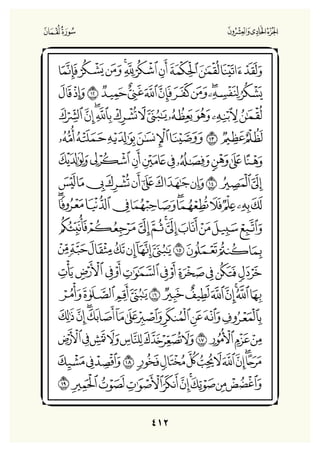 الجُزْءُ الحَادِي وَالعِشْرُونَ سُورَةُ لُقْمَان
وَلَقَدْ ءَاتَيْنَا لُقْمَٰنَ ٱلْحِكْمَةَ أَنِ ٱشْكُرْ لِلَّهِ ۚ وَمَن يَشْكُرْ فَإِنَّمَا
يَشْكُرُ لِنَفْسِهِۦ ۖ وَمَن كَفَرَ فَإِنَّ ٱللَّهَ غَنِىٌّ حَمِيدٌ ١٢ وَإِذْ قَالَ
لُقْمَٰنُ لِٱبْنِهِۦ وَهُوَ يَعِظُهُۥ يَٰبُنَىَّ لَا تُشْرِكْ بِٱللَّهِ ۖ إِنَّ ٱلشِّرْكَ
لَظُلْمٌ عَظِيمٌ ١٣ وَوَصَّيْنَا ٱلْإِنسَٰنَ بِوَٰلِدَيْهِ حَمَلَتْهُ أُمُّهُۥ
وَهْنًا عَلَىٰ وَهْنٍ وَفِصَٰلُهُۥ فِى عَامَيْنِ أَنِ ٱشْكُرْ لِى وَلِوَٰلِدَيْكَ
إِلَىَّ ٱلْمَصِيرُ ١٤ وَإِن جَٰهَدَاكَ عَلَىٰٓ أَن تُشْرِكَ بِى مَا لَيْسَ
لَكَ بِهِۦ عِلْمٌ فَلَا تُطِعْهُمَا ۖ وَصَاحِبْهُمَا فِى ٱلدُّنْيَا مَعْرُوفًا ۖ
وَٱتَّبِعْ سَبِيلَ مَنْ أَنَابَ إِلَىَّ ۚ ثُمَّ إِلَىَّ مَرْجِعُكُمْ فَأُنَبِّئُكُم
بِمَا كُنتُمْ تَعْمَلُونَ ١٥ يَٰبُنَىَّ إِنَّهَآ إِن تَكُ مِثْقَالَ حَبَّةٍ مِّنْ
خَرْدَلٍ فَتَكُن فِى صَخْرَةٍ أَوْ فِى ٱلسَّمَٰوَٰتِ أَوْ فِى ٱلْأَرْضِ يَأْتِ
بِهَا ٱللَّهُ ۚ إِنَّ ٱللَّهَ لَطِيفٌ خَبِيرٌ ١٦ يَٰبُنَىَّ أَقِمِ ٱلصَّلَوٰةَ وَأْمُرْ
بِٱلْمَعْرُوفِ وَٱنْهَ عَنِ ٱلْمُنكَرِ وَٱصْبِرْ عَلَىٰ مَآ أَصَابَكَ ۖ إِنَّ ذَٰلِكَ
مِنْ عَزْمِ ٱلْأُمُورِ ١٧ وَلَا تُصَعِّرْ خَدَّكَ لِلنَّاسِ وَلَا تَمْشِ فِى ٱلْأَرْضِ
مَرَحًا ۖ إِنَّ ٱللَّهَ لَا يُحِبُّ كُلَّ مُخْتَالٍ فَخُورٍ ١٨ وَٱقْصِدْ فِى مَشْيِكَ
وَٱغْضُضْ مِن صَوْتِكَ ۚ إِنَّ أَنكَرَ ٱلْأَصْوَٰتِ لَصَوْتُ ٱلْحَمِيرِ ١٩
٤١٢